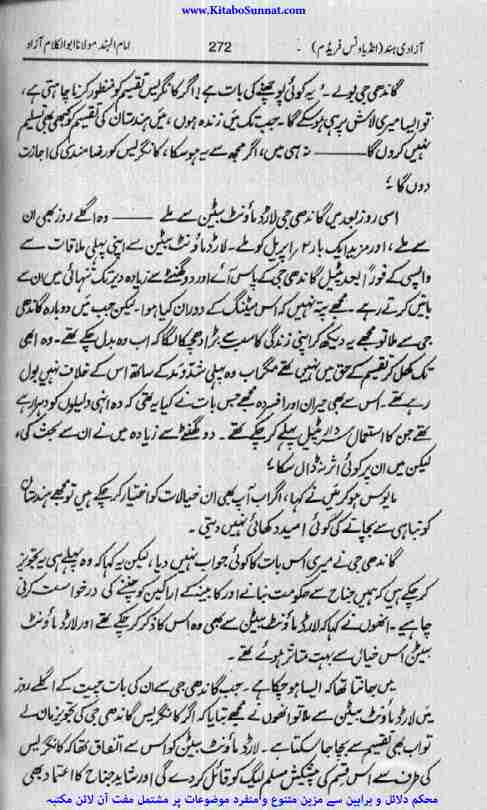 www.KitaboSunnat.com
آزادی ہند (انڈیا ونس فریڈم) ۔ 272 امام الہند مولانا ابوالکلام آزاد
گاندھی جی بولے ۔ "یہ کوئی پوچھنے کی بات ہے! اگر کانگریس تقسیم کو منظور کرنا چاہتی ہے،
تو ایسا میری لاش پر ہی ہوسکے گا ۔ جب تک میں زندہ ہوں، میں ہندستان کی تقسیم کو کبھی بھی تسلیم
نہیں کروں گا ——— نہ ہی میں، اگر مجھ سے یہ ہوسکا، کانگریس کو رضامندی کی اجازت
دوں گا ؛
اسی روز بعد میں گاندھی جی لارڈ ماؤنٹ بیٹن سے ملے ——— وہ اگلے روز بھی ان
سے ملے، اور مزید ایک بار ۲؍ اپریل کو ملے ۔ لارڈ ماؤنٹ بیٹن سے اپنی پہلی ملاقات سے
واپسی کے فوراً بعد پٹیل گاندھی جی کے پاس آئے اور دو گھنٹے سے زیادہ دیر تک تنہائی میں ان سے
باتیں کرتے رہے ۔ مجھے پتہ نہیں کہ اس میٹنگ کے دوران کیا ہوا ۔ لیکن جب میں دوبارہ گاندھی
جی سے ملا تو مجھے یہ دیکھ کر اپنی زندگی کا سب سے بڑا دھچکا لگا کہ اب وہ بدل چکے تھے ۔ وہ ابھی
تک کھل کر تقسیم کے حق میں نہیں تھے مگر اب وہ پہلی شدّومد کے ساتھ اس کے خلاف نہیں بول
رہے تھے ۔ اس سے بھی حیران اور افسردہ مجھے جس بات نے کیا یہ تھی کہ وہ انہی دلیلوں کو دہرا رہے
تھے جن کا استعمال سردار پٹیل پہلے کرچکے تھے ۔ دو گھنٹے سے زیادہ میں نے ان سے بحث کی،
لیکن میں ان پر کوئی اثر نہ ڈال سکا ؛
مایوس ہو کر میں نے کہا، اگر اب آپ بھی ان خیالات کو اختیار کرچکے ہیں تو مجھے ہندستان
کو تباہی سے بچانے کی کوئی امید دکھائی نہیں دیتی ۔
گاندھی جی نے میری اس بات کا کوئی جواب نہیں دیا، لیکن یہ کہا کہ وہ پہلے ہی یہ تجویز
کرچکے ہیں کہ ہمیں جناح سے حکومت بنانے اور کابینہ کے اراکین کو چننے کی درخواست کرنی
چاہیے ۔ انھوں نے کہا کہ لارڈ ماؤنٹ بیٹن سے بھی وہ اس کا ذکر کرچکے تھے اور لارڈ ماؤنٹ
بیٹن اس خیال سے بہت متاثر ہوئے تھے ۔
میں جانتا تھا کہ ایسا ہوچکا ہے ۔ جب گاندھی جی سے ان کی بات چیت کے اگلے روز
میں لارڈ ماؤنٹ بیٹن سے ملا تو انھوں نے مجھے بتایا کہ اگر کانگریس گاندھی جی کی تجویز مان لے
تو اب بھی تقسیم سے بچا جاسکتا ہے ۔ لارڈ ماؤنٹ بیٹن کو اس سے اتفاق تھا کہ کانگریس
کی طرف سے اس قسم کی پیشکش مسلم لیگ کو قائل کردے گی اور شاید جناح کا اعتماد بھی
محکم دلائل و براہین سے مزین متنوع و منفرد موضوعات پر مشتمل مفت آن لائن مکتبہ